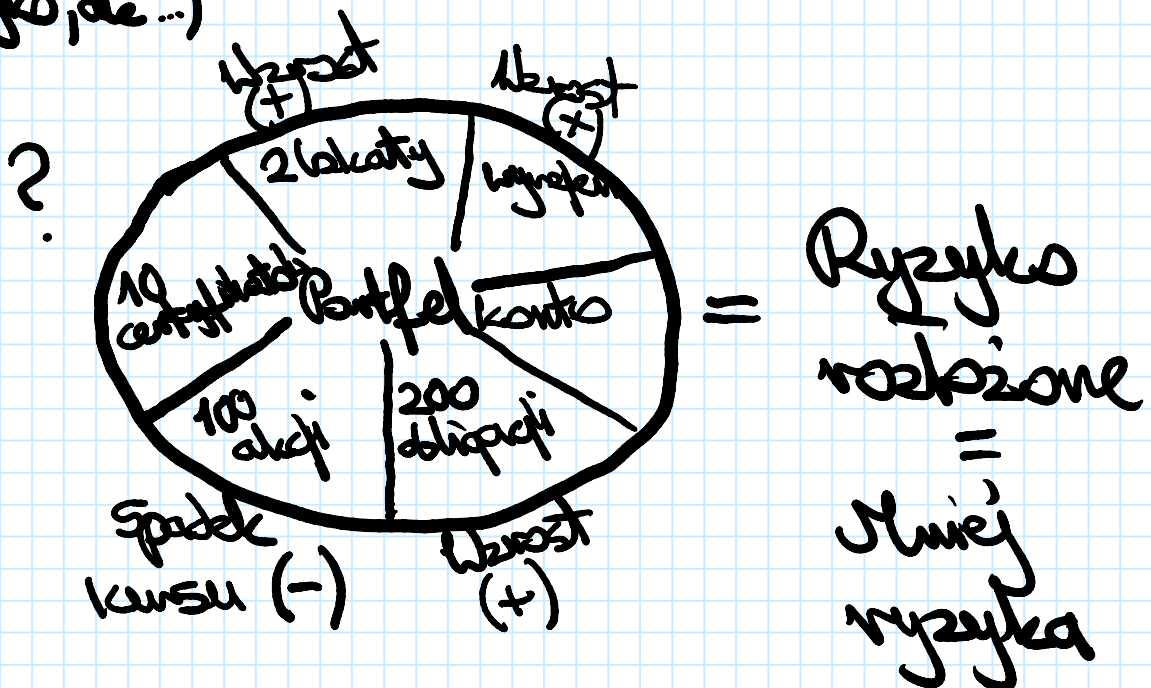 Wzrost
(+)
Wzrost
(+)
?
2 lokaty
10
certyfikatów
Portfel
konto
100
akcji
200
obligacji
Spadek
kursu (-)
Wzrost
(+)
=
Ryzyko
rozłożone
=
Mniej
ryzyka